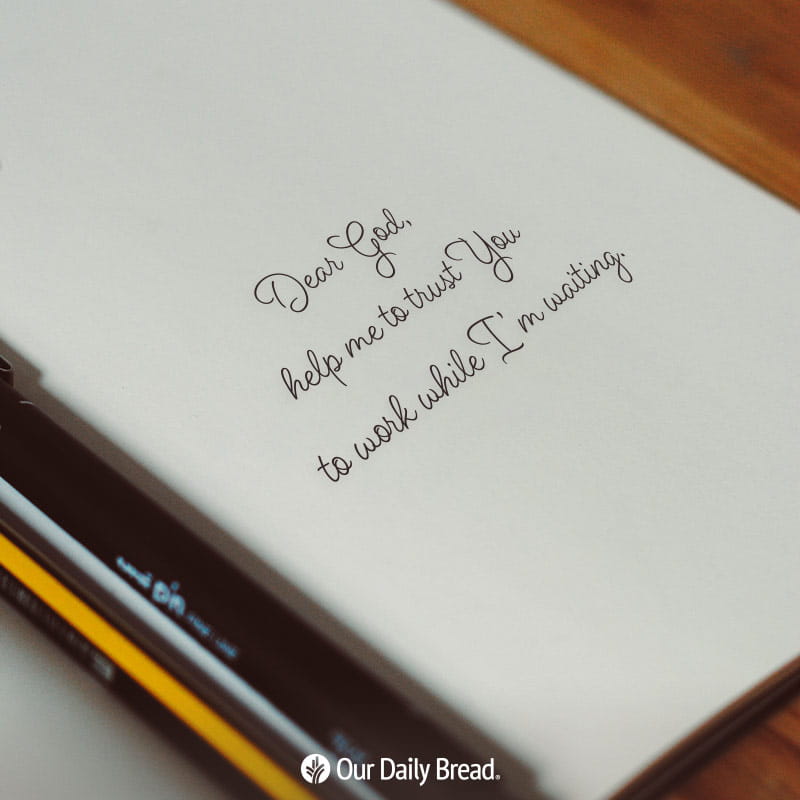 Dear God,
help me to trust You
to work while I'm waiting.
uni
PIN
FINE LINE
Our Daily Bread®